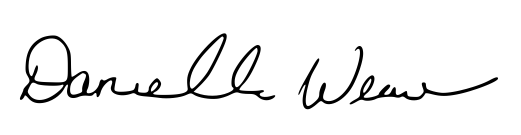 Danielle Weaver